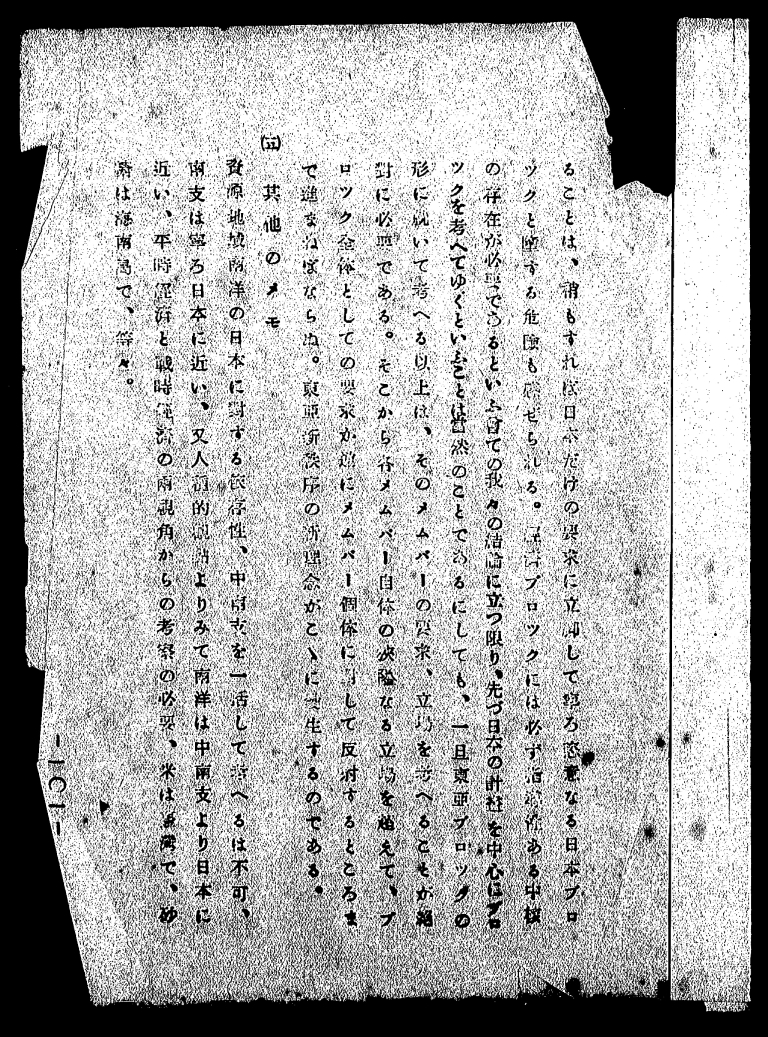 ることは、稍もすれば日本だけの要求に立脚して寧ろ恣意なる日本ブロ
ツクと堕する危険も感ぜられる。経済ブロツクには必ず指導性ある中核
の存在が必要であるといふ曾ての我々の結論に立つ限り、先づ日本の計畫を中心にブロ
ツクを考へてゆくといふことは當然のことであるにしても、一旦東亜ブロツクの
形に就いて考へる以上は、そのメムバーの要求、立場を考へることが絶
對に必要である。そこから各メムバー自体の狭隘なる立場を越えて、ブ
ロツク全体としての要求が逆にメムバー個体に対して反射するところま
で進まねばならぬ。東亜新秩序の新理念がこゝに発生するのである。
㈤ 其他のメモ
資源地域南洋の日本に對する依存性、中南支を一括して考へるは不可、
南支は寧ろ日本に近い、又人的よりみて南洋は中南支より日本に
近い、平時経済と戦時経済の両視角からの考察の必要、米は臺湾で、砂
糖は海南島で、等々。
－101－